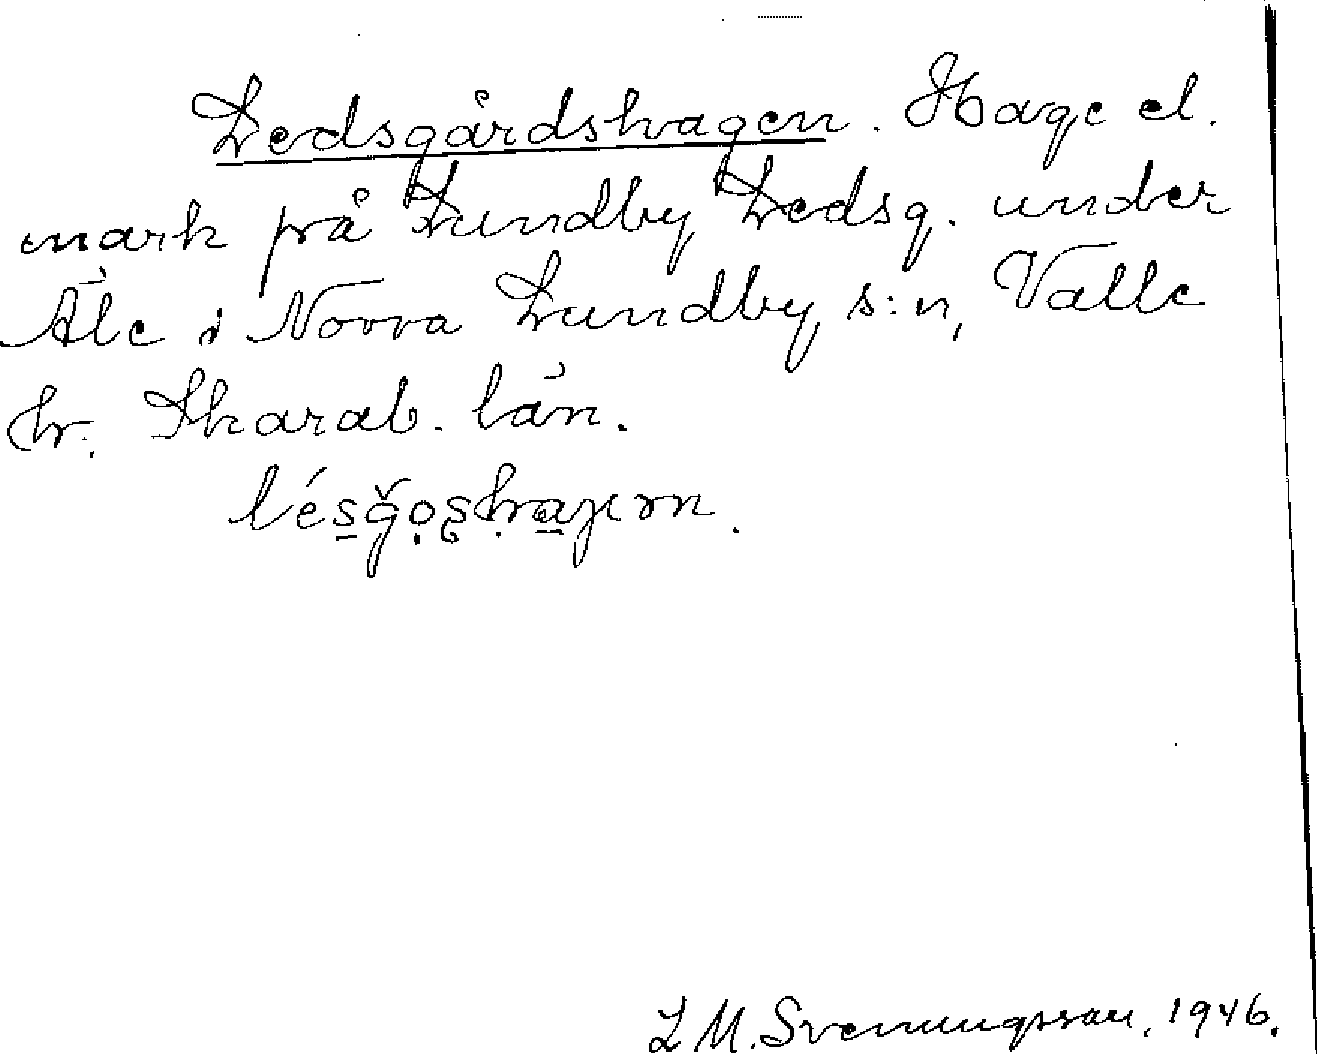 Ledsgårdshagen. Hage el.
mark på Lundby Ledsg. under
Äle i Norra Lundby s:n, Valle
hr. Skarab. län.
L M. Svenungsson, 1946.